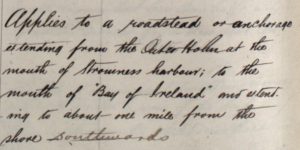 Applies to a roadstead or anchorage
extending from the Outer Holm at the
mouth of Stromness harbour; to the
mouth of "Bay of Ireland" and extend
ing to about one mile from the
shore Southwards